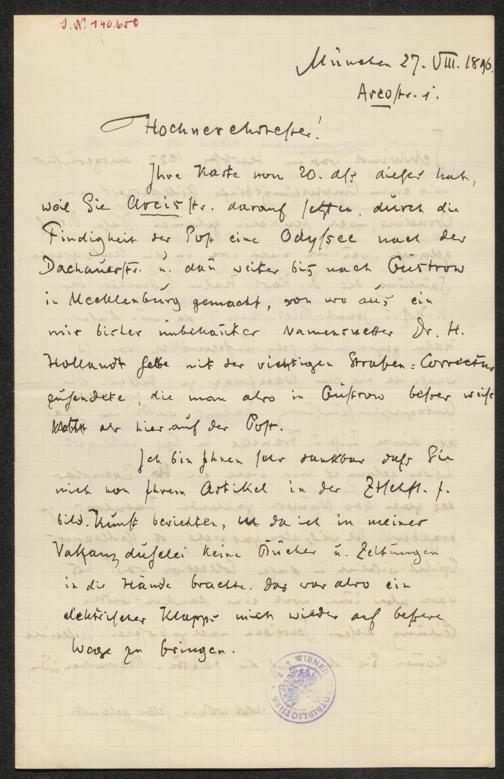 J. N. 140.650
München 27. VIII. 1896.
Arcostr. 1.
Hochverehrtester!
Ihre Karte vom 20. als dieses hat,
weil Sie Arcisstr. darauf setzten, durch die
Findigkeit der Post eine Odyssee nach der
Dachauerstr. u. dan weiter bis nach Güstrow
in Mecklenburg gemacht, von wo aus ein
mir bisher unbekanter Namensvetter Dr. H.
Hollandt selbe mit der richtigen Straßen=Correctur
zusendete, die man also in Güstrow besser weiß
als hier auf der Post.
Ich bin Ihnen sehr dankbar daß Sie
mich von Ihrem Artikel in der Ztschft. f.
bild. Kunst berichten, da ich in meiner
Vakanzduselei keine Bücher u. Zeitungen
in die Hände brachte. Das war also ein
elektrischer Klapps mich wieder auf bessere
Wege zu bringen.
WIENER STADTBIBLIOTHEK